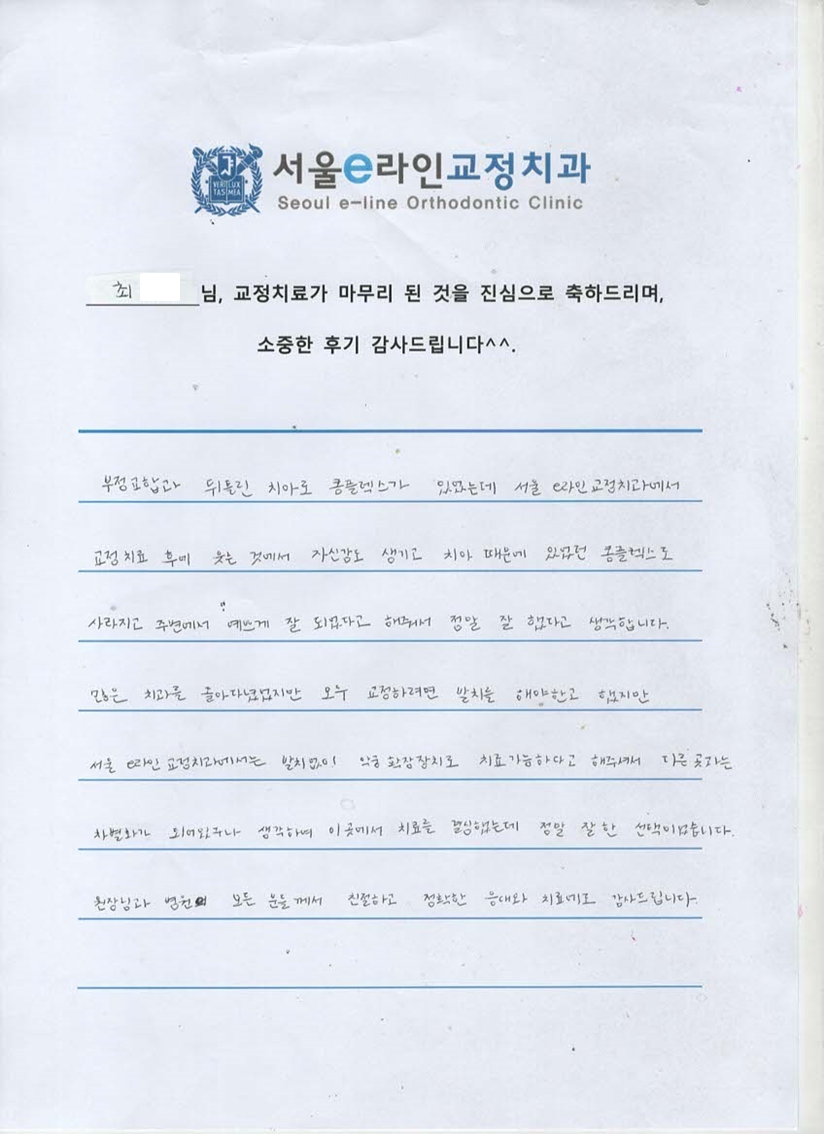 서울e라인교정치과
Seoul e-line Orthodontic Clinic
VERI LUX
TAS MEA
최 님, 교정치료가 마무리 된 것을 진심으로 축하드리며,
소중한 후기 감사드립니다^^.
부정교합과 뒤틀린 치아로 콤플렉스가 있었는데 서울 e라인 교정치과에서
교정치료 후에 웃는 것에서 자신감도 생기고 치아 때문에 있었던 콤플렉스도
사라지고 주변에서 예쁘게 잘 되었다고 해줘서 정말 잘 했다고 생각합니다.
많은 치과를 돌아다녔었지만 모두 교정하려면 발치를 해야한고 했지만
서울 e라인 교정치과에서는 발치없이 악궁확장장치로 치료가능하다고 해주셔서 다른 곳과는
차별화가 되어있구나 생각하며 이곳에서 치료를 결심했는데 정말 잘 한 선택이었습니다.
원장님과 병원 모든 분들께서 친절하고 정확한 응대와 치료에도 감사드립니다.